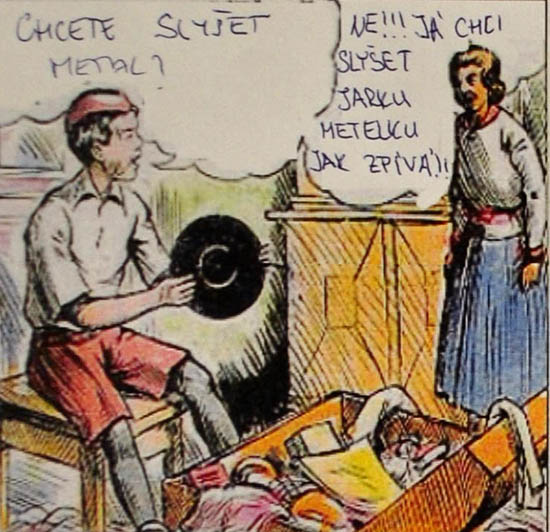 CHCETE SLYŠET
METAL?
NE!!! JÁ CHCI
SLYŠET
JARKU
METELKU
JAK ZPÍVÁ!!